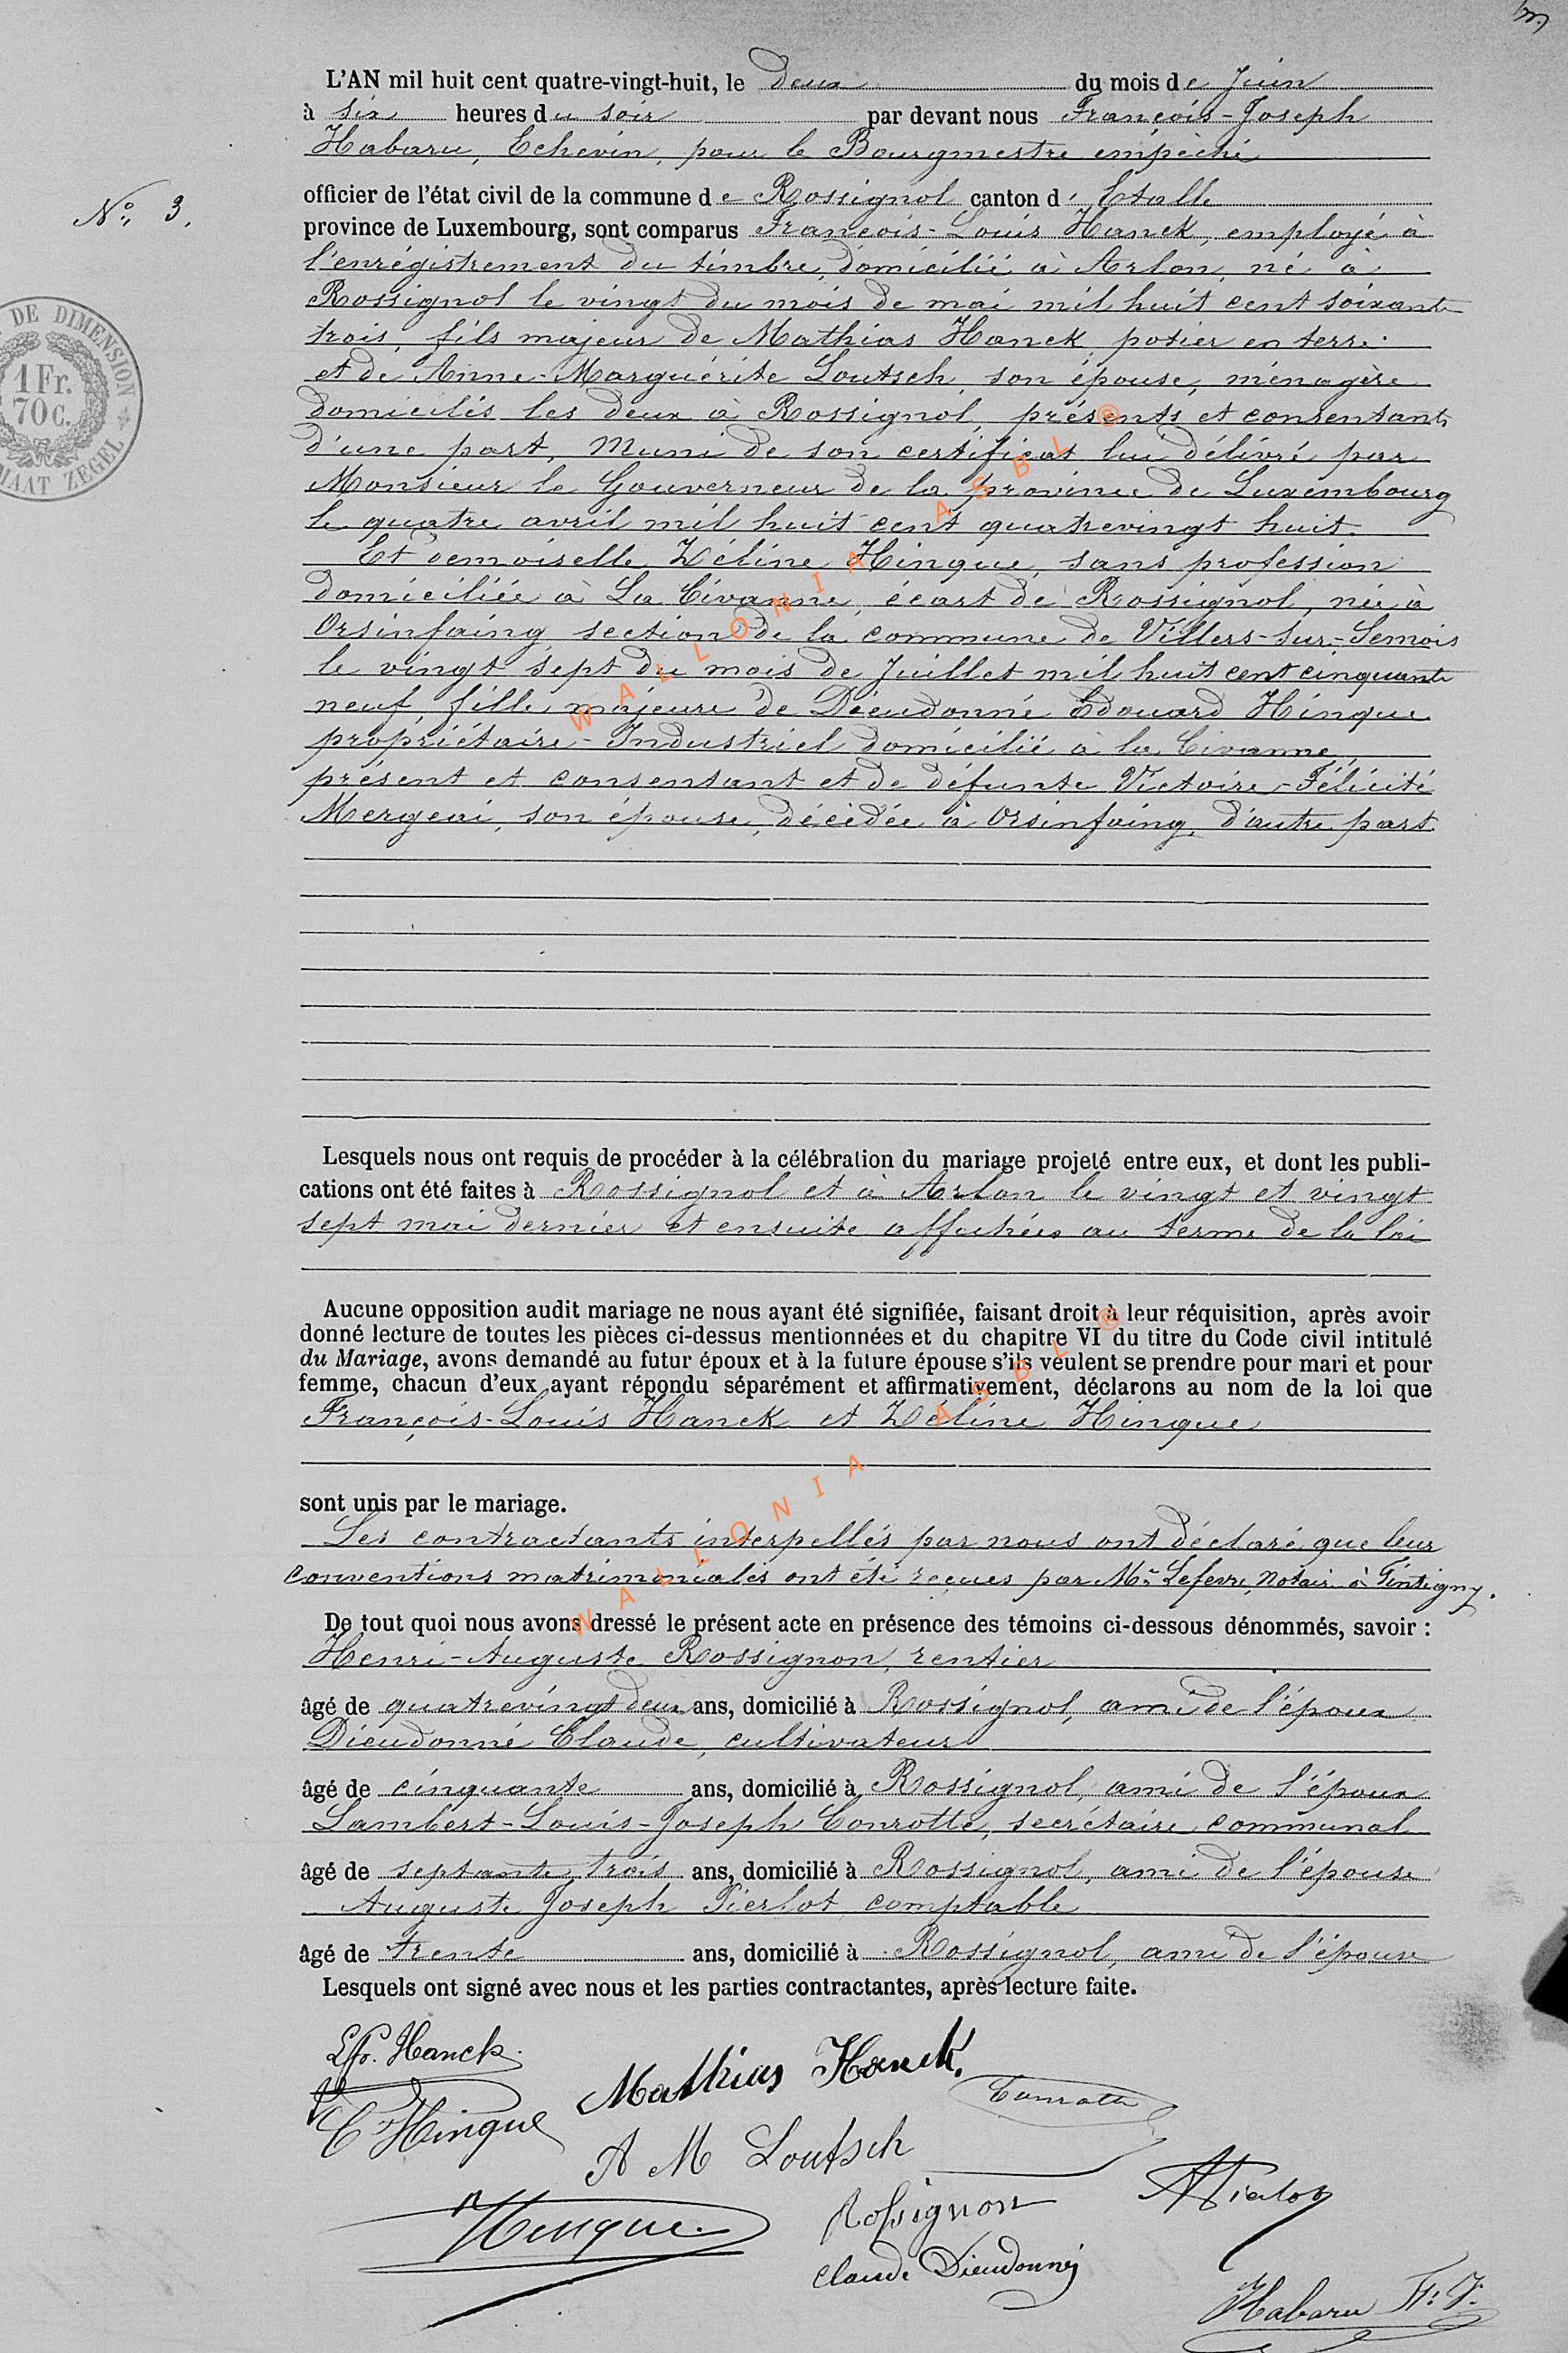 L'AN mil huit cent quatre-vingt-huit, le deux du mois de Juin
à six heures du soir par devant nous François-Joseph
Habaru, Echevin, pour le Bourgmestre empêché
officier de l'état civil de la commune de Rossignol canton d' Etalle
N° 3.
province de Luxembourg, sont comparus François-Louis Hanck, employé à
l'enrégistrement du timbre, domicilié à Arlon, né à
Rossignol le vingt du mois de mai mil huit cent soixante
trois, fils majeur de Mathias Hanck, potier en terre
et de Anne-Marguérite Loutsch, son épouse, ménagère
domiciliés les deux à Rossignol, présents et consentants
d'une part, Muni de son certificat lui délivré par
Monsieur le Gouverneur de la province de Luxembourg
le quatre avril mil huit cent quatrevingt huit.
Et demoiselle Zéline Hinque, sans profession
domiciliée à La Civanne, écart de Rossignol, née à
Orsinfaing section de la commune de Villers-sur-Semois
le vingt sept du mois de Juillet mil huit cent cinquante
neuf, fille majeure de Dieudonné Edouard Hinque
propriétaire-Industriel domicilié à la Civanne,
présent et consentant et de défunte Victoire-Félicité
Mergeai, son épouse, décédée à Orsinfaing, d'autre part.
DE DIMENSION
1 Fr.
70 C.
MAAT ZEGEL
Lesquels nous ont requis de procéder à la célébration du mariage projeté entre eux, et dont les publi-
cations ont été faites à Rossignol et à Arlon le vingt et vingt
sept mai dernier et ensuite affichées au terme de la loi
Aucune opposition audit mariage ne nous ayant été signifiée, faisant droit à leur réquisition, après avoir
donné lecture de toutes les pièces ci-dessus mentionnées et du chapitre VI du titre du Code civil intitulé
du Mariage, avons demandé au futur époux et à la future épouse s'ils veulent se prendre pour mari et pour
femme, chacun d'eux ayant répondu séparément et affirmativement, déclarons au nom de la loi que
François-Louis Hanck et Zéline Hinque
sont unis par le mariage.
Les contractants interpellés par nous ont déclaré que leur
conventions matrimoniales ont été reçues par Mr Lefevre, Notaire à Tintigny.
De tout quoi nous avons dressé le présent acte en présence des témoins ci-dessous dénommés, savoir :
Henri-Auguste Rossignon, rentier
âgé de quatrevingt deux ans, domicilié à Rossignol, ami de l'époux
Dieudonné Claude, cultivateur
âgé de cinquante ans, domicilié à Rossignol, ami de l'époux
Lambert-Louis-Joseph Conrotte, secrétaire communal
âgé de septante trois ans, domicilié à Rossignol, ami de l'épouse
Auguste Joseph Pierlot comptable
âgé de trente ans, domicilié à Rossignol, ami de l'épouse
Lesquels ont signé avec nous et les parties contractantes, après lecture faite.
Hanck
Mathias Hanck.
Conrotte
Hinque
A M Loutsch
Pierlot
Hinque
Rossignon
Claude Dieudonné
Habaru F. J.
WALLONIA ASBL ®
WALLONIA ASBL ®